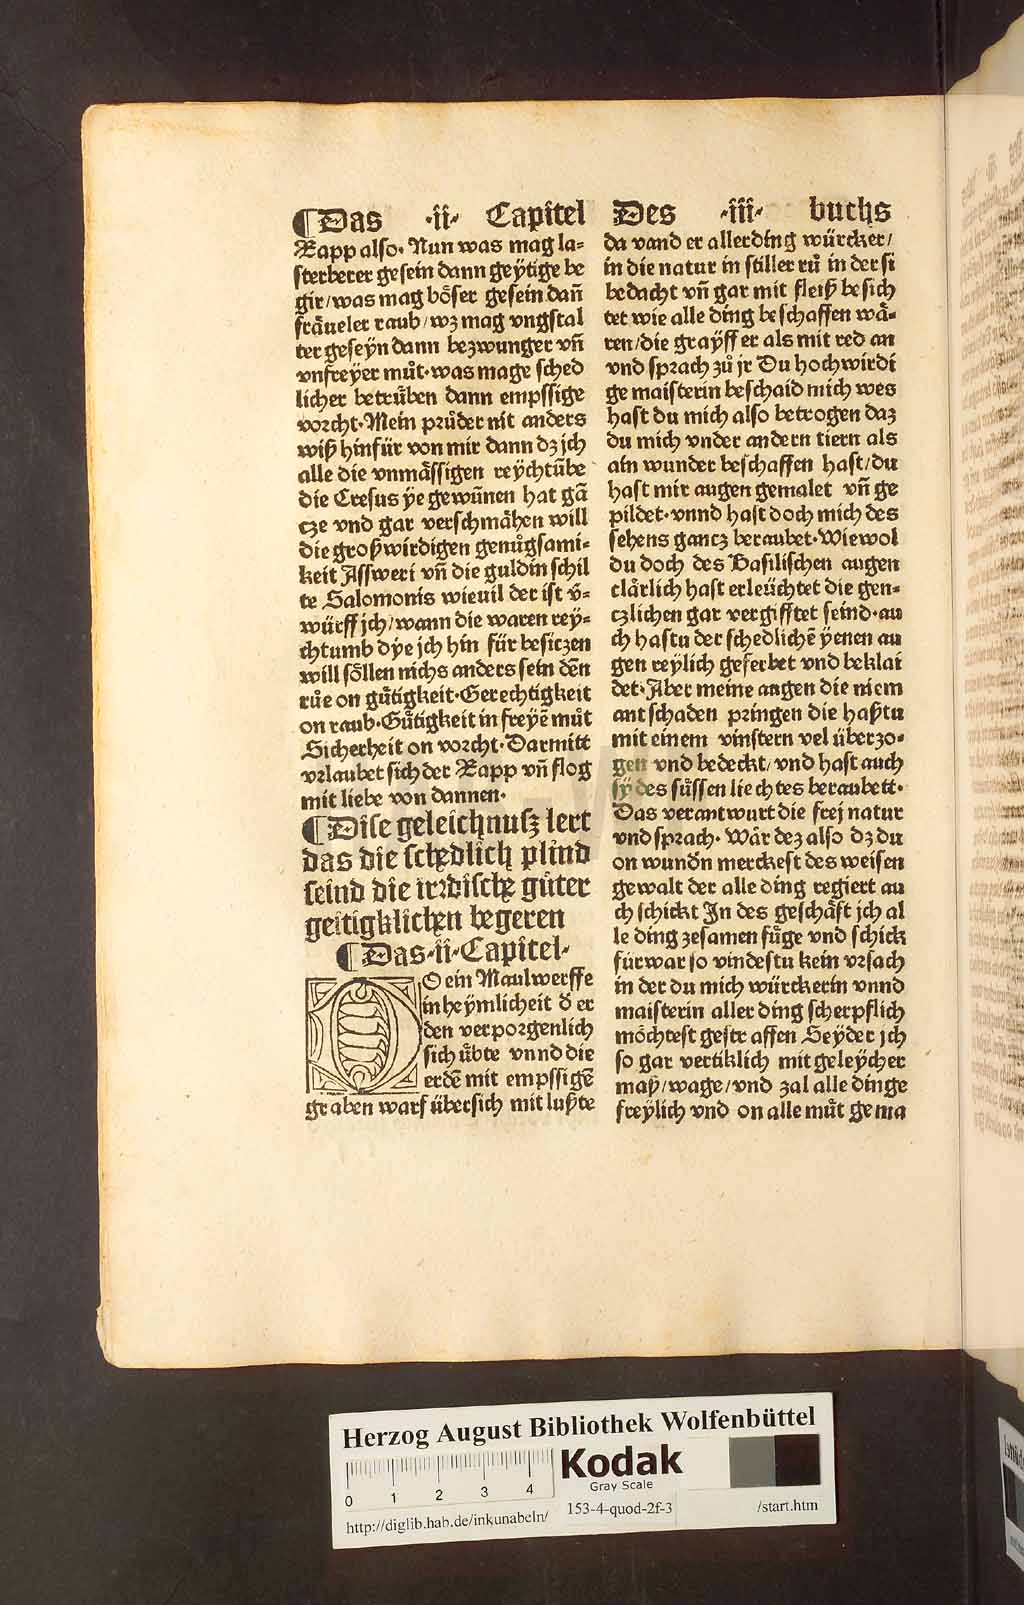 ¶Das ·ii· Capitel
Rapp also· Nun was mag la⸗
sterberer gesein dann geÿtige be
gir/was mag böser gesein dañ
fräueler raub/wz mag vngstal
ter geseyn dann bezwunger vñ
vnfreyer můt·was mage sched
licher betrüben dann empssige
vorcht·Mein průder nit anders
wiß hinfür von mir dann dz jch
alle die vnmässigen reÿchtũbe
die Cresus ÿe gewũnen hat gã
cze vnd gar verschmähen will
die großwirdigen genůgsami⸗
keit Assweri vñ die guldin schil
te Salomonis wieuil der ist v̄⸗
würff jch/wann die waren rey⸗
chtumb dye jch hin für besiczen
will söllen nichs anders sein dēn
růe on gůtigkeit·Gerechtigkeit
on raub·Gůtigkeit in freyē můt
Sicherheit on vorcht·Darmitt
vrlaubet sich der Rapp vñ flog
mit liebe von dannen·
¶Dise geleichnusz lert
das die schedlich plind
seind die irrdische gůter
geitigklichen begeren
¶Das·ii·Capitel·
DO ein Maulwerffe
in heÿmlicheit d̄ er
den verporgenlich
sich übte vnnd die
erdē mit empssigē
graben warf übersich mit lußte
Des ·iii· buchs
da vand er allerding würcker/
in die natur in stiller rů in der si
bedacht vñ gar mit fleiß besich
tet wie alle ding beschaffen wä⸗
ren/die graÿff er als mit red an
vnd sprach zů jr Du hochwirdi
ge maisterin beschaid mich wes
hast du mich also betrogen daz
du mich vnder andern tiern als
ain wunder beschaffen hast/du
hast mir augen gemalet vñ ge
pildet·vnnd hast doch mich des
sehens gancz beraubet·Wiewol
du doch des Basilischen augen
clärlich hast erleüchtet die gen⸗
czlichen gar vergifftet seind·au
ch hastu der schedlichē ÿenen au
gen reylich geferbet vnd beklai
det·Aber meine augen die niem
ant schaden pringen die haßtu
mit einem vinstern vel überzo⸗
gen vnd bedeckt/vnd hast auch
sÿ des süssen liechtes beraubett·
Das verantwurt die frej natur
vnd sprach·Wär dez also dz du
on wundn merckest des weisen
gewalt der alle ding regiert au
ch schickt In des geschäft jch al
le ding zesamen füge vnd schick
fürwar so vindestu kein vrsach
in der du mich würckerin vnnd
maisterin aller ding scherpflich
möchtest gestraffen Seÿder jch
so gar vertiklich mit geleÿcher
maÿ/wage/vnd zal alle dinge
freÿlich vnd on alle můt gema
Herzog August Bibliothek Wolfenbüttel
0 1 2 3 4
Kodak
Gray Scale
http://diglib.hab.de/inkunabeln/ 153-4-quod-2f-3 /start.htm